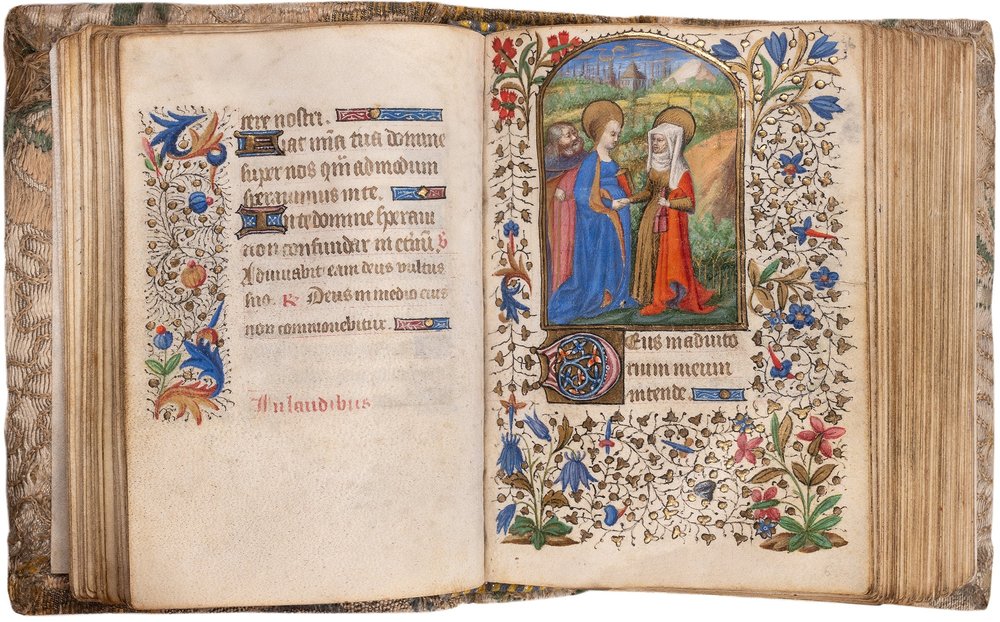 rere nostri.
Fiat mīa tua domine
super nos quēadmodum
speravimus in te.
In te domine speravi
non confundar in eternū. V
Adiuvabit eam deus vultu
suo. R Deus in medio eius
non commovebitur.
In laudibus
Deus in adiuto
rium meum
intende.